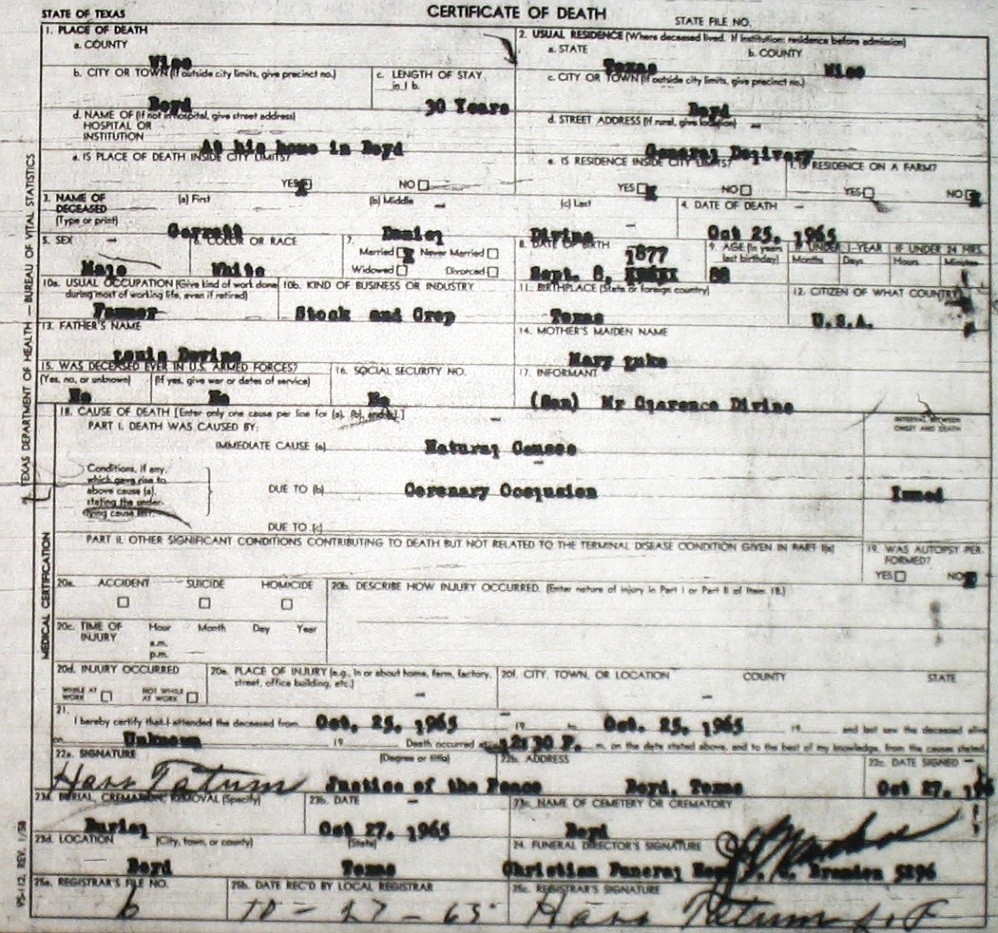 STATE OF TEXAS
CERTIFICATE OF DEATH
STATE FILE NO.
1. PLACE OF DEATH
a. COUNTY
Wise
2. USUAL RESIDENCE (Where deceased lived. If institution: residence before admission)
a. STATE
Texas
b. COUNTY
Wise
b. CITY OR TOWN (If outside city limits, give precinct no.)
Boyd
c. LENGTH OF STAY in 1 b.
30 Years
c. CITY OR TOWN (If outside city limits, give precinct no.)
Boyd
d. NAME OF (If not in hospital, give street address)
HOSPITAL OR
INSTITUTION
At his home in Boyd
d. STREET ADDRESS (If rural, give location)
General Delivery
e. IS PLACE OF DEATH INSIDE CITY LIMITS?
YES X NO
e. IS RESIDENCE INSIDE CITY LIMITS?
YES X NO
f. IS RESIDENCE ON A FARM?
YES NO X
3. NAME OF DECEASED
(Type or print)
(a) First
Garrett
(b) Middle
Daniel
(c) Last
Divine
4. DATE OF DEATH
Oct 25, 1965
5. SEX
Male
6. COLOR OR RACE
White
7.
Married X Never Married
Widowed Divorced
8. DATE OF BIRTH
1877
Sept. 8,
9. AGE (In years last birthday)
88
IF UNDER 1 YEAR
Months Days
IF UNDER 24 HRS.
Hours Minutes
10a. USUAL OCCUPATION (Give kind of work done during most of working life, even if retired)
Farmer
10b. KIND OF BUSINESS OR INDUSTRY
Stock and Crop
11. BIRTHPLACE (State or foreign country)
Texas
12. CITIZEN OF WHAT COUNTRY?
U.S.A.
13. FATHER'S NAME
Louis Devine
14. MOTHER'S MAIDEN NAME
Mary Luke
15. WAS DECEASED EVER IN U.S. ARMED FORCES?
(Yes, no, or unknown)
No
(If yes, give war or dates of service)
No
16. SOCIAL SECURITY NO.
No
17. INFORMANT
(Son) Mr Clarence Divine
18. CAUSE OF DEATH [Enter only one cause per line for (a), (b), and (c).]
INTERVAL BETWEEN
ONSET AND DEATH
PART I. DEATH WAS CAUSED BY:
IMMEDIATE CAUSE (a)
Natural Causes
Conditions, if any,
which gave rise to
above cause (a),
stating the under-
lying cause last.
DUE TO (b)
Coronary Occlusion
Immed
DUE TO (c)
PART II. OTHER SIGNIFICANT CONDITIONS CONTRIBUTING TO DEATH BUT NOT RELATED TO THE TERMINAL DISEASE CONDITION GIVEN IN PART I(a)
19. WAS AUTOPSY PER-
FORMED?
YES NO X
20a. ACCIDENT SUICIDE HOMICIDE
20b. DESCRIBE HOW INJURY OCCURRED. (Enter nature of injury in Part I or Part II of Item 18.)
20c. TIME OF INJURY
Hour Month Day Year
a.m.
p.m.
20d. INJURY OCCURRED
WHILE AT WORK
NOT WHILE AT WORK
20e. PLACE OF INJURY (e.g., in or about home, farm, factory, street, office building, etc.)
20f. CITY, TOWN, OR LOCATION COUNTY STATE
21.
I hereby certify that I attended the deceased from Oct. 25, 1965 19 to Oct. 25, 1965 19 and last saw the deceased alive
on Unknown 19 Death occurred at 12:30 P. m. on the date stated above, and to the best of my knowledge, from the causes stated.
22a. SIGNATURE
(Degree or title)
Hans Tatum Justice of the Peace
22b. ADDRESS
Boyd, Texas
22c. DATE SIGNED
Oct 27,
23a. BURIAL, CREMATION, REMOVAL (Specify)
Burial
23b. DATE
Oct 27, 1965
23c. NAME OF CEMETERY OR CREMATORY
Boyd
23d. LOCATION (City, town, or county) (State)
Boyd Texas
24. FUNERAL DIRECTOR'S SIGNATURE
Christian Funeral Home 5296
25a. REGISTRAR'S FILE NO.
6
25b. DATE REC'D BY LOCAL REGISTRAR
10-27-65
25c. REGISTRAR'S SIGNATURE
Hans Tatum
TEXAS DEPARTMENT OF HEALTH — BUREAU OF VITAL STATISTICS
MEDICAL CERTIFICATION
VS-112, REV. 1/58